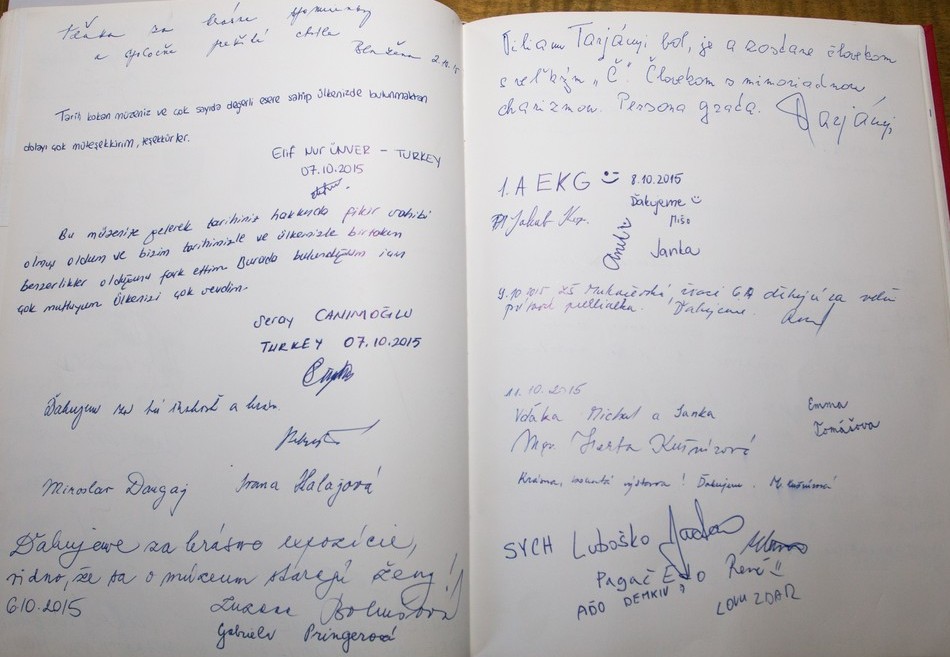 Vďaka za krásne spomienky
a spoločne prežité chvíle
2.10.15
Tarih kokan müzeniz ve çok sayıda değerli esere sahip ülkenizde bulunmaktan
dolayı çok müteşekkirim, teşekkürler.
Elif Nur ÜNVER - TURKEY
07.10.2015
Bu müzenize gelerek tarihiniz hakkında fikir sahibi
olmuş oldum ve bizim tarihimizle ve ülkemizle birtakım
benzerlikler olduğunu fark ettim Burada bulunduğum için
çok mutluyum Ülkenizi çok sevdim.
Seray CANIMOĞLU
TURKEY 07.10.2015
Ďakujem za
Miroslav Dargaj Ivana Halajová
Ďakujeme za krásnu expozície,
vidno, že sa o múzeum starajú ženy!
6.10.2015 Zuzana Bohušová
Gabriela Pringerová
Viliam Tarjányi bol, je a zostane človekom
s veľkým „Č“. Človekom s mimoriadnou
charizmou. Persona grata. Tarjányi
1. A EKG 8.10.2015
Ďakujeme
Jakub Mišo
Janka
9.10.2015 ZŠ Mukačevská, žiaci 6.A ďakujú za veľmi
Ďakujeme.
11.10.2015
Vďaka Michal a Janka
Emma
Tomášova
Mgr. Herta Kušnírová
Krásna, výstava! Ďakujem.
SYCH Luboško
Pagáč René!!
AĎO DEMKIV
LOVU ZDAR